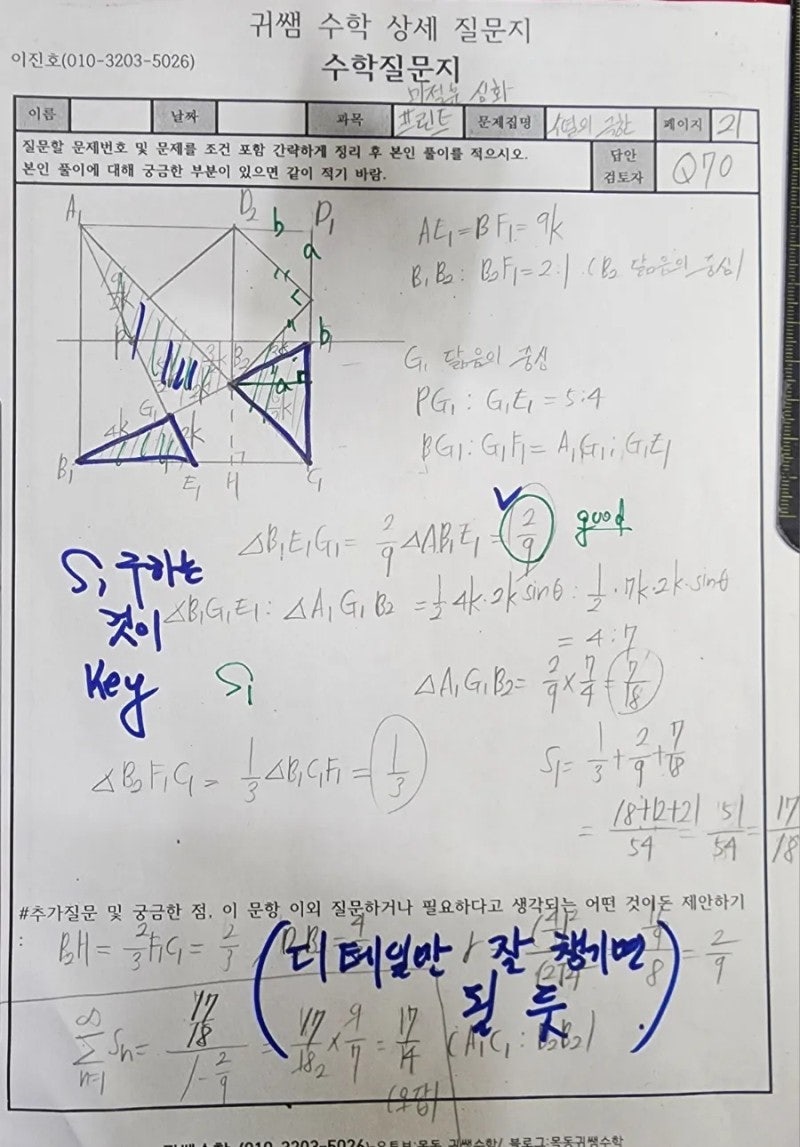 귀쌤 수학 상세 질문지
이진호(010-3203-5026)
수학질문지
미적분 심화
이름 날짜 과목 프린트 문제집명 페이지 21
질문할 문제번호 및 문제를 조건 포함 간략하게 정리 후 본인 풀이를 적으시오.
본인 풀이에 대해 궁금한 부분이 있으면 같이 적기 바람.
답안
검토자
Q70
A₁ D₂ b D₁
a
P B₂ b
G₁ a
4k 2k
B₁ E₁ H C₁
AE₁=BF₁=9k
B₁B₂: B₂F₁=2:1 (B₂ 닮음의 중심)
G₁ 닮음의 중심
PG₁: G₁E₁=5:4
BG₁: G₁F₁= A₁G₁: G₁E₁
△B₁E₁G₁= 2/9 △AB₁E₁= 2/9 good
S₁ 구하는
것이
Key
△B₁G₁E₁: △A₁G₁B₂ = 1/2 4k·2k sinθ: 1/2·7k·2k·sinθ
= 4:7
S₁
△A₁G₁B₂= 2/9 × 7/4 = 7/18
△B₂F₁C₁= 1/3 △B₁C₁F₁= 1/3
S₁= 1/3 + 2/9 + 7/18
= (18+12+21)/54 = 51/54 = 17/18
#추가질문 및 궁금한 점, 이 문항 이외 질문하거나 필요하다고 생각되는 어떤 것이든 제안하기
:
B₂H= 2/3 F₁C₁= 2/3
= 2/9
(디테일만 잘 챙기면
될 듯.)
∞Σn=1 Sn= (17/18)/(1-2/9) = 17/18 × 9/7 = 17/14 (A₁C₁: D₂B₂)
(오답)
(010-3203-5026)-유튜브:목동 귀쌤수학/ 블로그:목동귀쌤수학